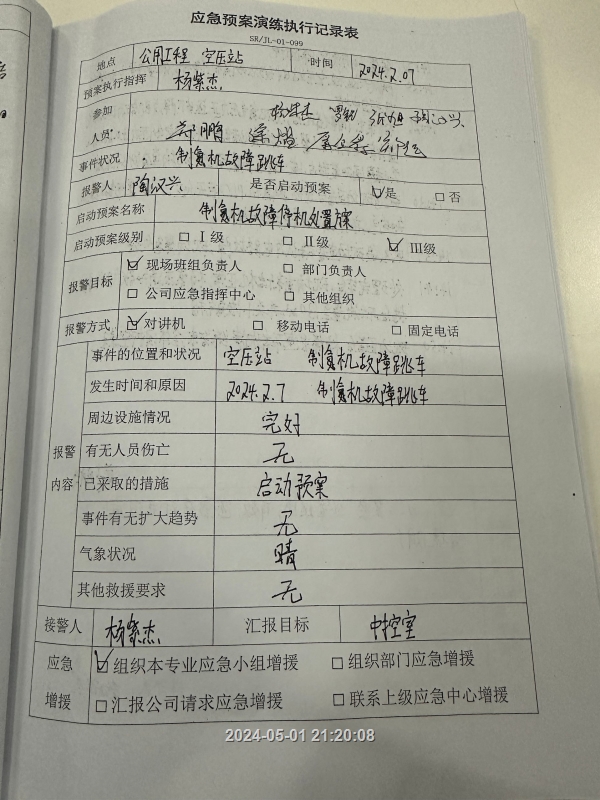 应急预案演练执行记录表
SR/JL-01-099
地点 公用工程 空压站 时间 2024.2.07
预案执行指挥 杨紫杰
参加
人员
事件状况 制氮机故障跳车
报警人 陶汉兴 是否启动预案 ☑是 □否
启动预案名称 制氮机故障停机处置方案
启动预案级别 □Ⅰ级 □Ⅱ级 ☑Ⅲ级
报警目标 ☑现场班组负责人 □部门负责人
□公司应急指挥中心 □其他组织
报警方式 ☑对讲机 □移动电话 □固定电话
报警内容
事件的位置和状况 空压站 制氮机故障跳车
发生时间和原因 2024.2.7 制氮机故障跳车
周边设施情况 完好
有无人员伤亡 无
已采取的措施 启动预案
事件有无扩大趋势 无
气象状况 晴
其他救援要求 无
接警人 杨紫杰 汇报目标 中控室
应急 ☑组织本专业应急小组增援 □组织部门应急增援
增援 □汇报公司请求应急增援 □联系上级应急中心增援
2024-05-01 21:20:08